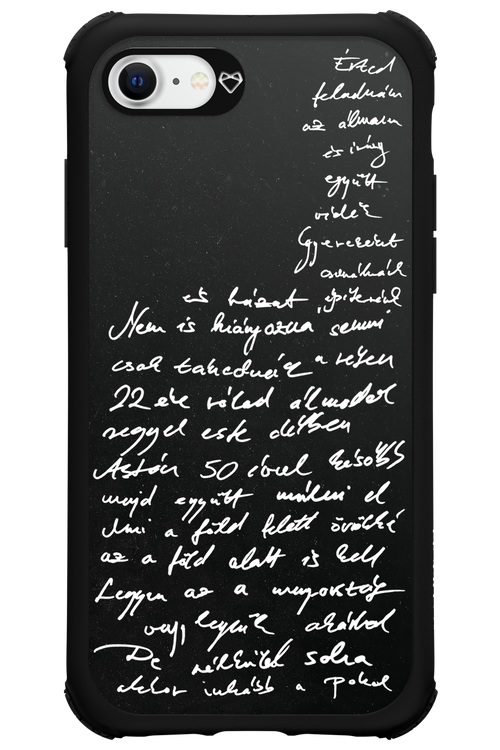 Érted
feladnám
az álmom
és így
együtt
vidék
Gyereket
csinálnánk
és házat építenénk
Nem is hiányozna semmi
csak takednék a réten
22 éve rólad álmodok
reggel este délben
Aztán 50 évvel később
majd együtt múlni el
Ami a föld felett örökké
az a föld alatt is kell
Legyen az a mayoság
vagy legyünk akárhol
De nélküled soha
akkor inkább a Pokol